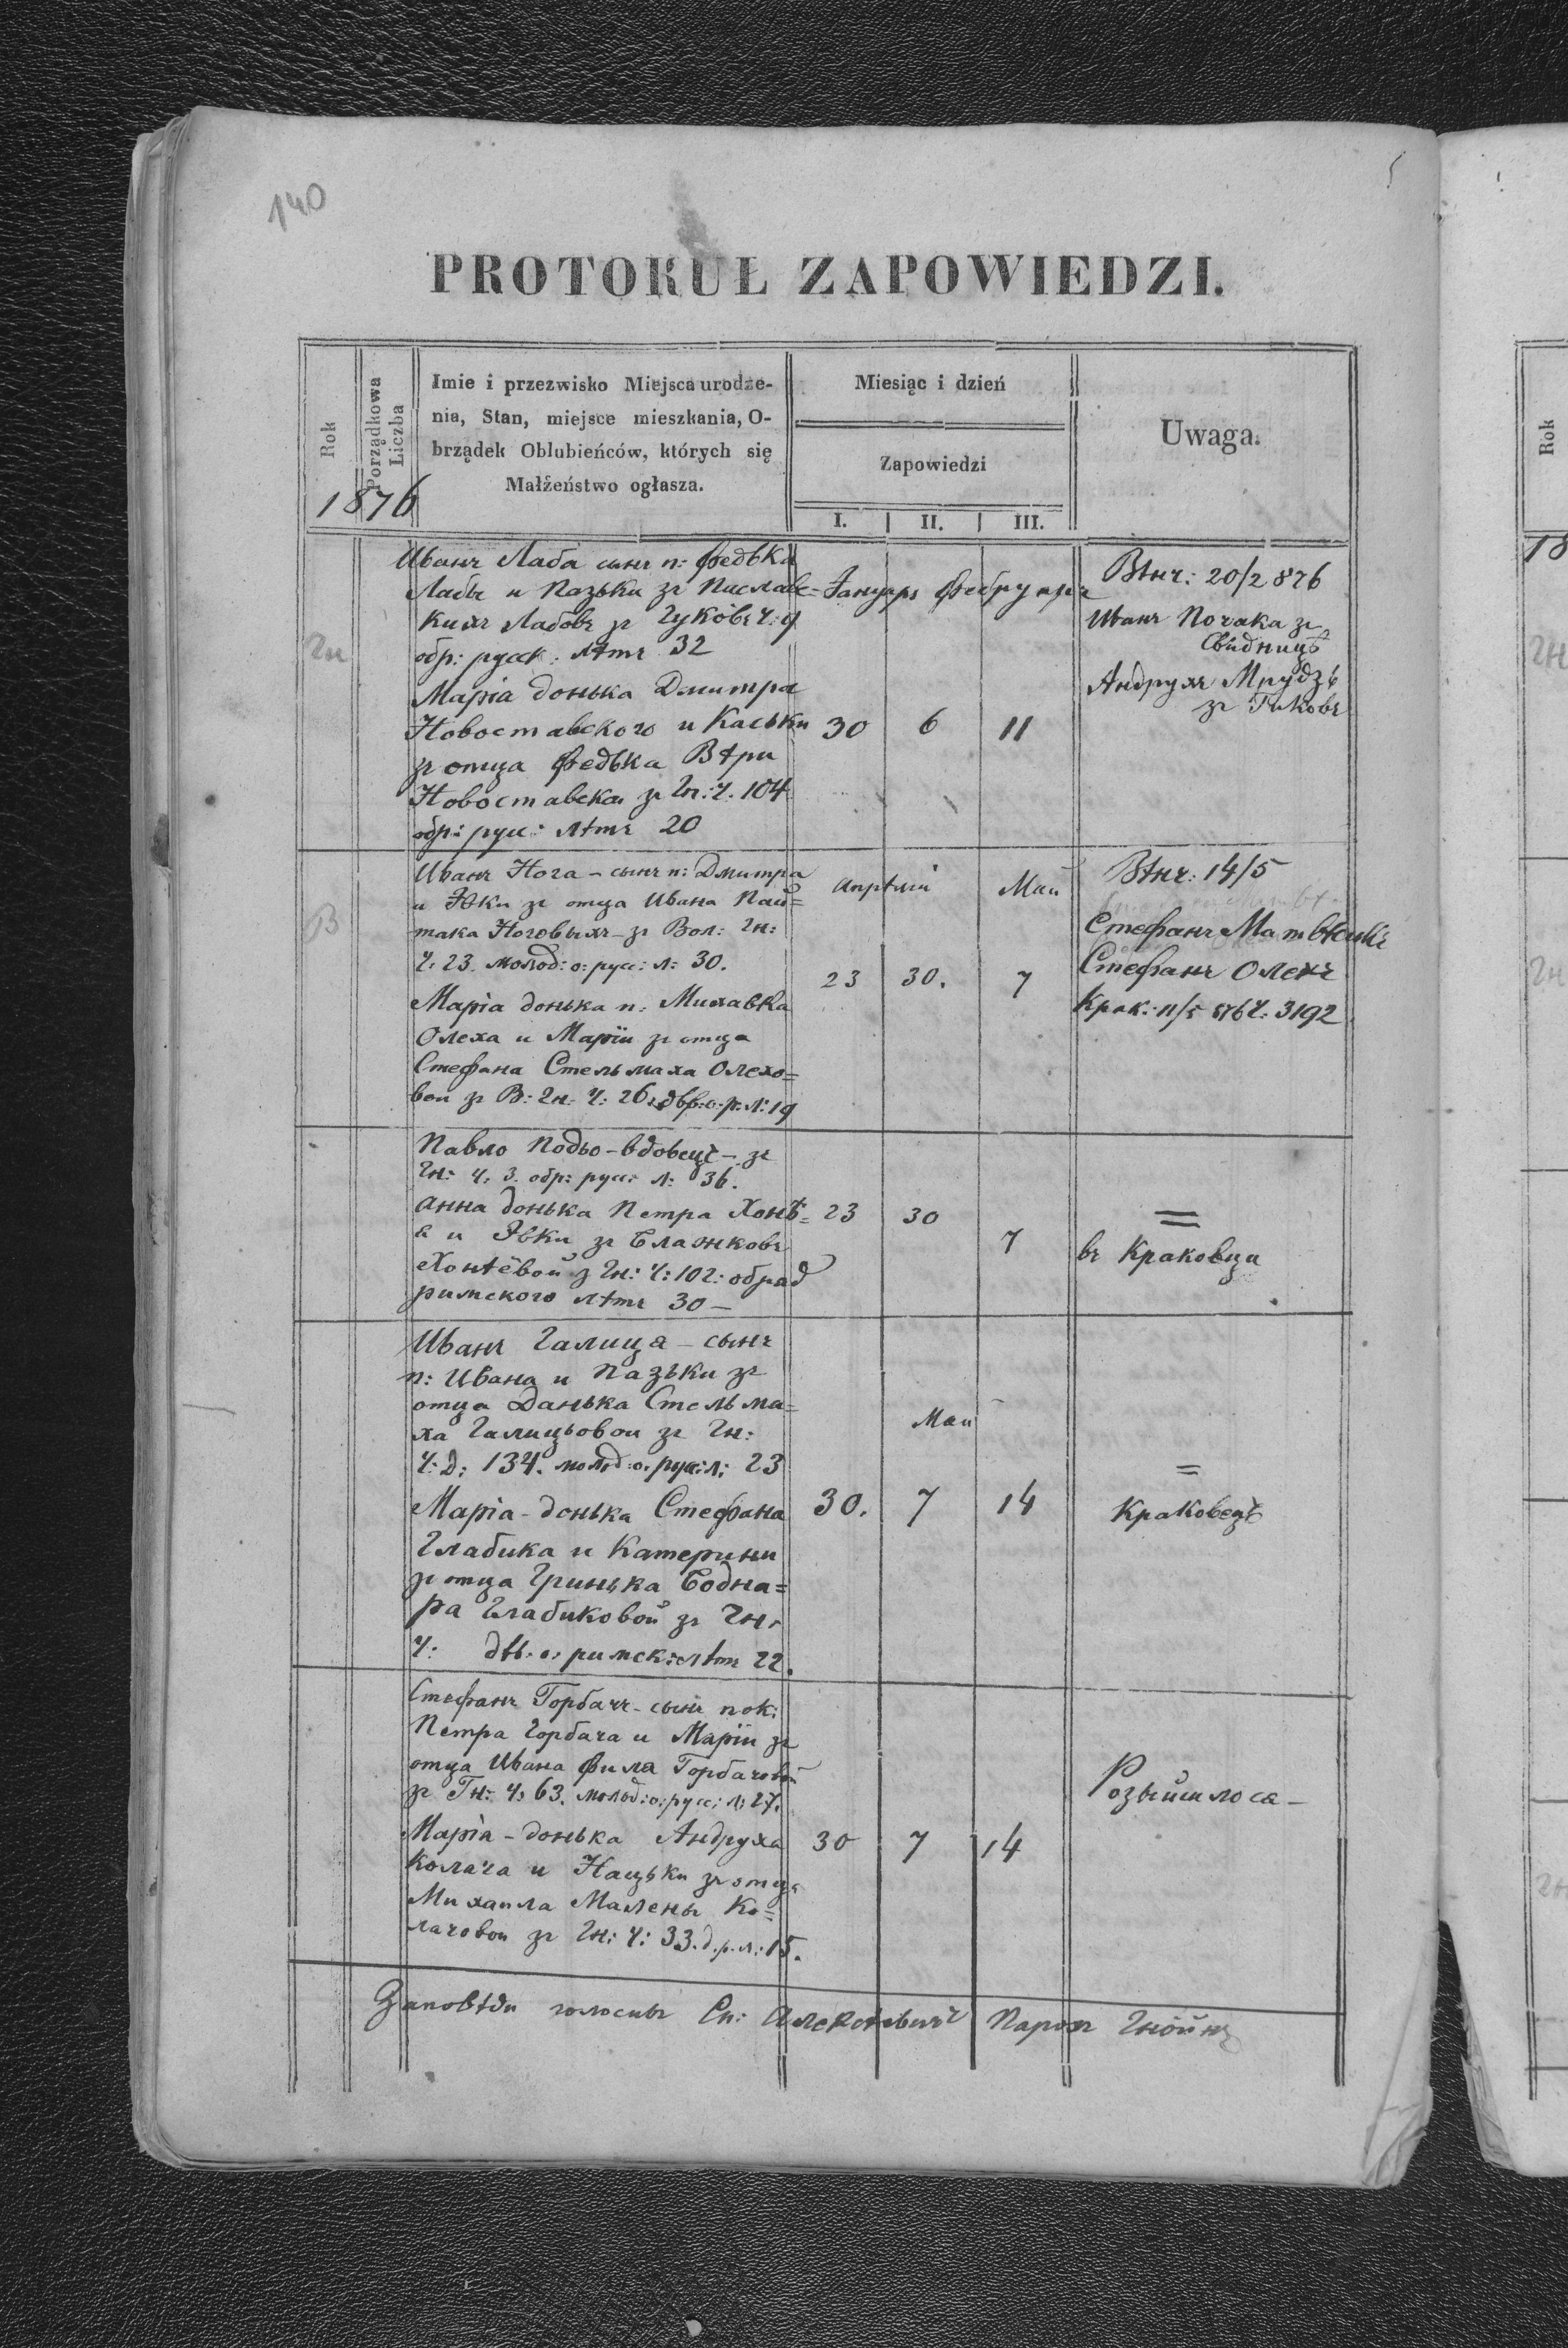 140
PROTOKUŁ ZAPOWIEDZI.
Rok
Porządkowa
Liczba
Imie i przezwisko Miejsca urodze-
nia, Stan, miejsce mieszkania, O-
brządek Oblubieńców, których się
Małżeństwo ogłasza.
Miesiąc i dzień
Zapowiedzi
I. II. III.
Uwaga.
1876
Гн
Иванъ Лаба сынъ п: Федька
Лабы и Пазьки зъ
Кихъ Лабовъ зъ Чуковъ ч: 9
обр: русск: лѣтъ 32
Марія донька Дмитра
Новоставского и Каськи
зъ отца Федька Вѣтри
Новоставска зъ Гн: ч. 104
обр: рус: лѣтъ 20
Януарь Фебруаръ
30 6 11
Вѣнч: 20/2 876
Иванъ Почака зъ
Свидницѣ
Андрухъ Мрудзь
зъ Гиковъ
В
Иванъ Нога - сынъ п: Дмитра
и Явки зъ отца Ивана Пай=
така Ноговыхъ - зъ Вол: Гн:
ч: 23. молод: о: рус: л: 30.
Марія донька п: Михавка
Олеха и Маріи зъ отца
Стефана Стельмаха Олехо=
вои зъ В: Гн: ч: 26, дѣв: о. р. л: 19
Апрѣлій Май
23 30. 7
Вѣнч: 14/5
Стефанъ Матвѣикъ
Стефанъ Олехъ
Крак: 11/5 876 ч: 3192
Павло Подьо - вдовецъ - зъ
Гн: ч. 3. обр: рус: л: 36.
Анна донька Петра Хонтѣ=
я и Явки зъ Блажковъ
Хонтѣвой з Гн: ч: 102: обряд
римского лѣтъ 30 -
23 30 7
=
въ Краковци
Иванъ Галиця - сынъ
п: Ивана и Пазьки зъ
отца Данька Стельма=
ха Галицьовои зъ Гн:
ч: д: 134. молод: о. рус: л: 23
Марія - донька Стефана
Глабика и Катерини
зъ отца Гринька Бодна=
ра Глабиковой зъ Гн:
ч: дѣв: о: римск: лѣт 22.
Май
30. 7 14
=
Краковець
Стефанъ Горбачъ - сынъ пок:
Петра Горбача и Маріи зъ
отца Ивана Фила Горбачовой
зъ Гн: ч: 63. молод: о: рус: л: 27.
Марія - донька Андруха
Колача и Нацьки зъ отца
Михаила Малены Ко=
лачовои зъ Гн: ч: 33. д. р. л: 15.
30 7 14
Розыйшлося -
Заповѣди голосивъ Алексѣевичъ Парохъ Гнойнц
Rok
18
Гн
Гн
Гн